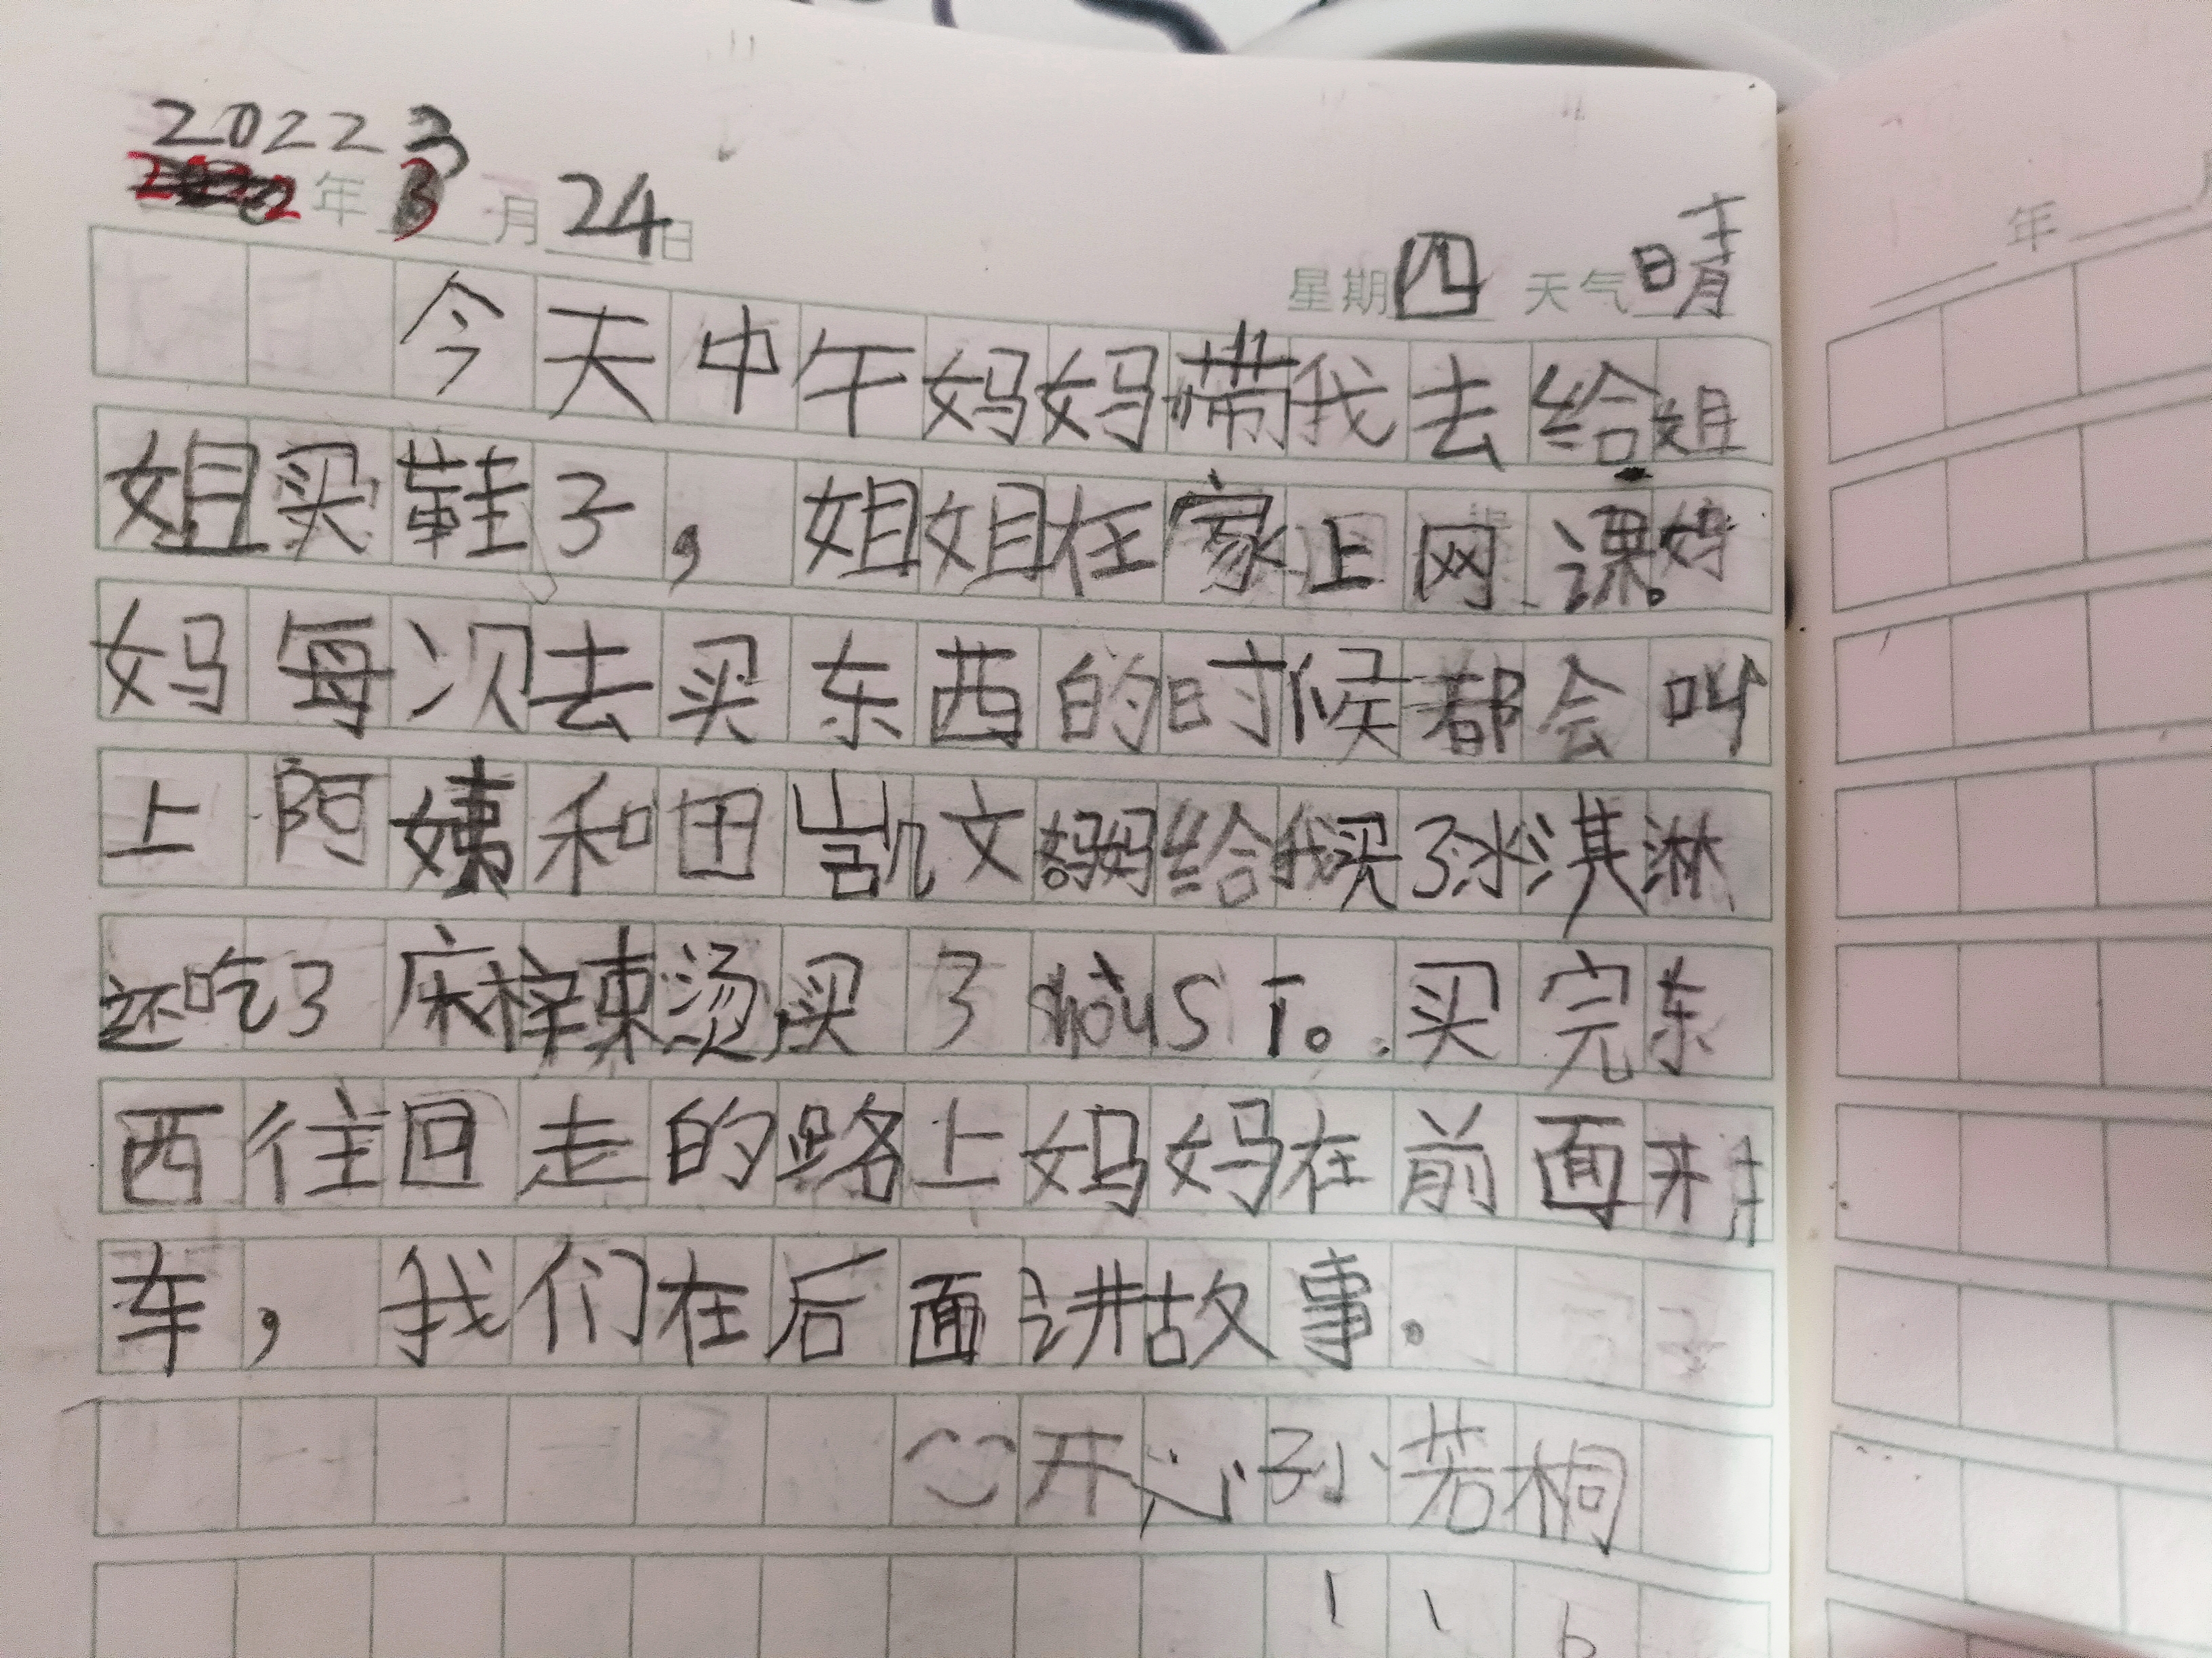 2022 3
年 3 月 24 日
星期 四 天气 晴
今天中午妈妈带我去给姐
姐买鞋子，姐姐在家上网课。妈
妈每次去买东西的时候都会叫
上阿姨和田凯文。妈妈给我买了冰淇淋
还吃了麻辣烫，买了shǒu sī。买完东
西往回走的路上妈妈在前面
车，我们在后面讲故事。
开心 孙若桐
年